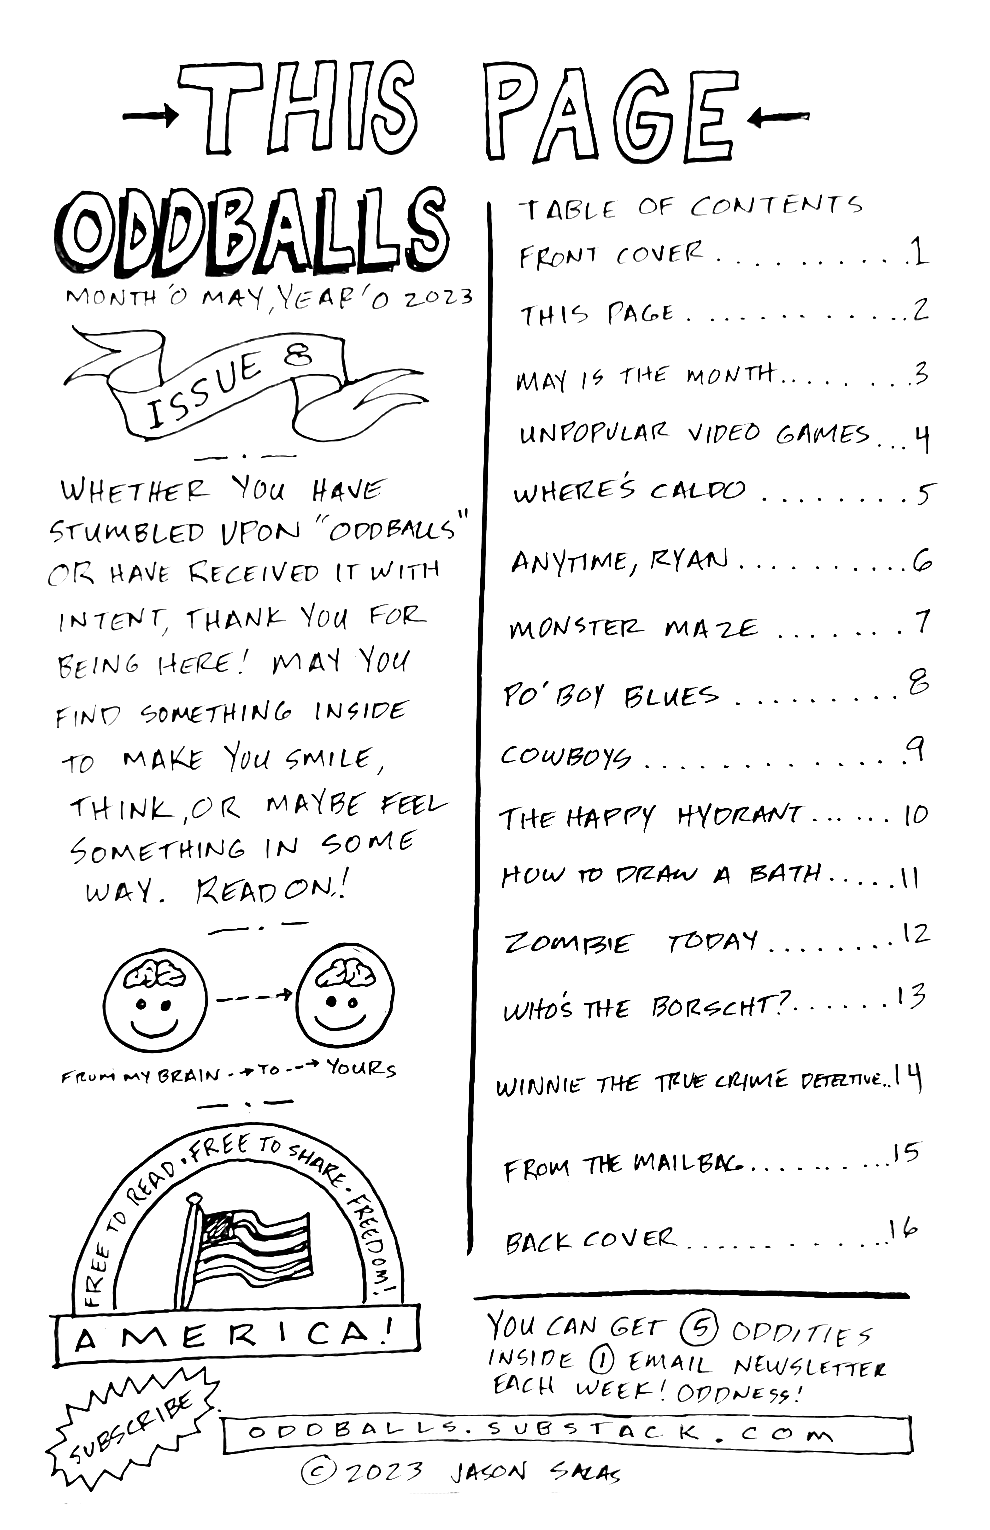 THIS PAGE
ODDBALLS
MONTH 'O MAY, YEAR 'O 2023
ISSUE 8
WHETHER YOU HAVE
STUMBLED UPON "ODDBALLS"
OR HAVE RECEIVED IT WITH
INTENT, THANK YOU FOR
BEING HERE! MAY YOU
FIND SOMETHING INSIDE
TO MAKE YOU SMILE,
THINK, OR MAYBE FEEL
SOMETHING IN SOME
WAY. READ ON!
FROM MY BRAIN --→ TO ---→ YOURS
FREE TO READ • FREE TO SHARE • FREEDOM!
AMERICA!
SUBSCRIBE
TABLE OF CONTENTS
FRONT COVER..........1
THIS PAGE............2
MAY IS THE MONTH........3
UNPOPULAR VIDEO GAMES...4
WHERE'S CALDO........5
ANYTIME, RYAN..........6
MONSTER MAZE.......7
PO' BOY BLUES.........8
COWBOYS.............9
THE HAPPY HYDRANT......10
HOW TO DRAW A BATH.....11
ZOMBIE TODAY........12
WHO'S THE BORSCHT?......13
WINNIE THE TRUE CRIME DETECTIVE..14
FROM THE MAILBAG..........15
BACK COVER............16
YOU CAN GET 5 ODDITIES
INSIDE 1 EMAIL NEWSLETTER
EACH WEEK! ODDNESS!
ODDBALLS.SUBSTACK.COM
© 2023 JASON SALAS